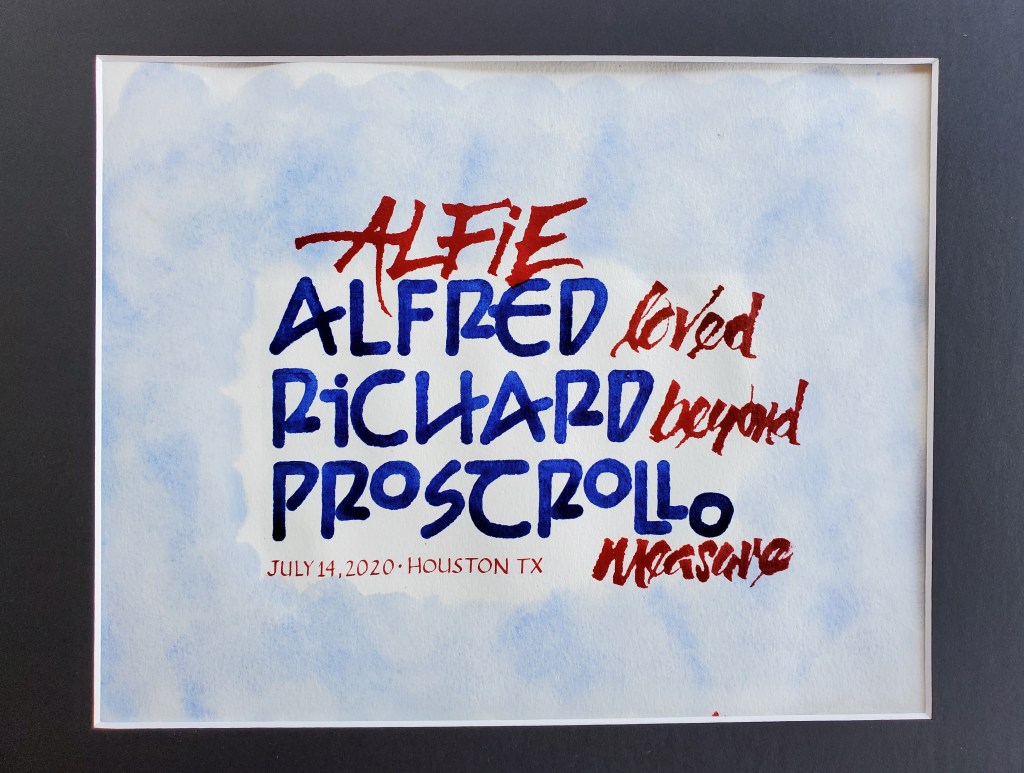 ALFiE
ALFRED loved
RiCHARD beyond
PROSTROLLO
measure
JULY 14, 2020 · HOUSTON TX